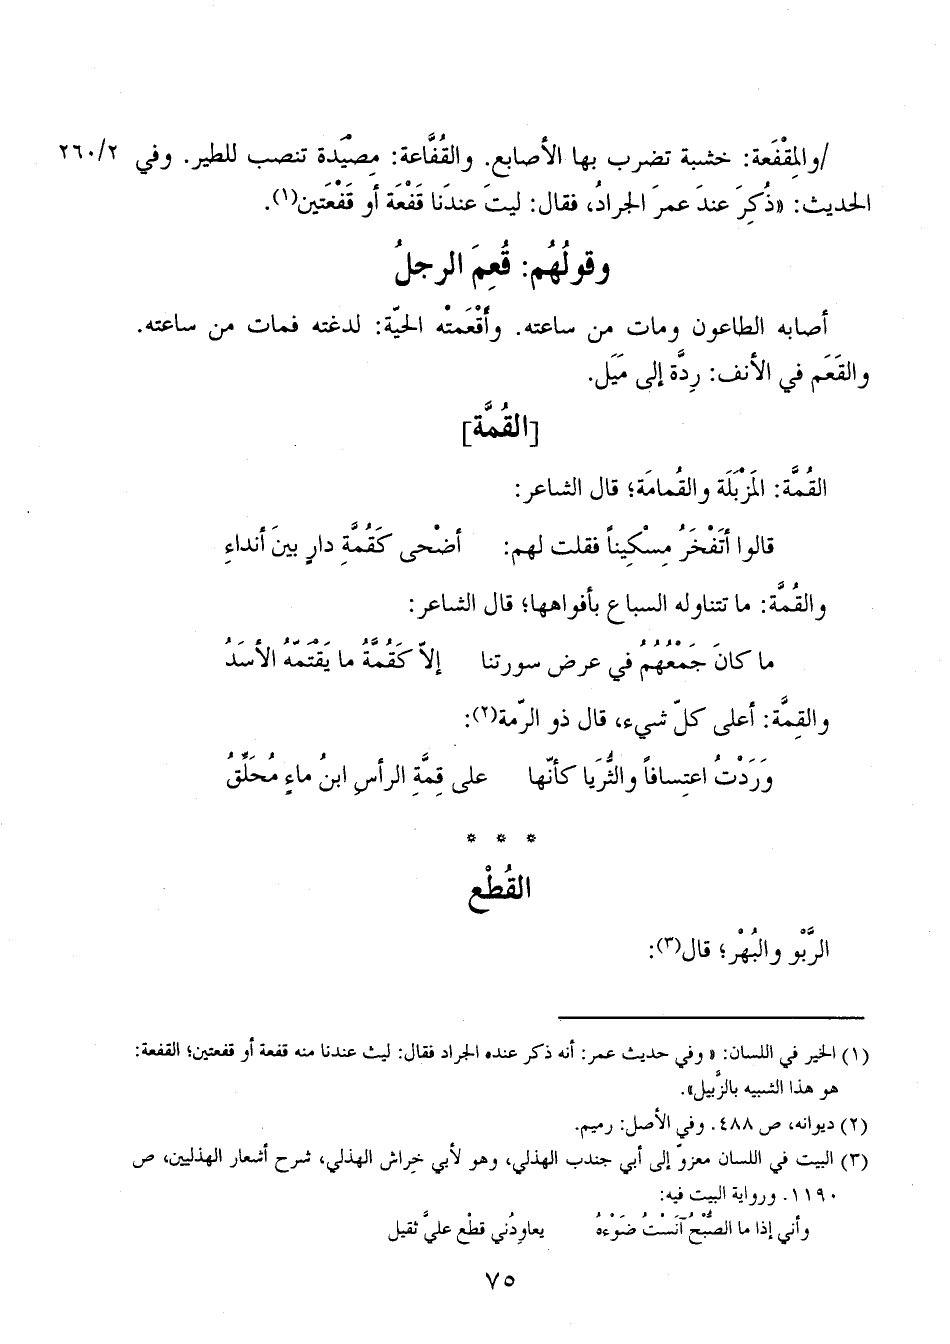 /والمِقْفَعة: خشبة تضرب بها الأصابع. والقُفَّاعة: مِصيْدة تنصب للطير. وفي ٢٦٠/٢
الحديث: «ذُكِرَ عندَ عمرَ الجرادُ، فقال: ليتَ عندَنا قَفْعَة أو قَفْعَتين(١).
وقولُهُم: قُعِمَ الرجلُ
أصابه الطاعون ومات من ساعته. وأَقْعَمتْه الحيّة: لدغته فمات من ساعته.
والقَعَم في الأنف: رِدَّة إلى مَيَل.
[القُمَّة]
القُمَّة: المَزْبَلَة والقُمامَة؛ قال الشاعر:
قالوا أتَفْخَرُ مِسْكِيناً فقلت لهم: أضْحى كَقُمَّةِ دارٍ بينَ أنداءِ
والقُمَّة: ما تتناوله السباع بأفواهها؛ قال الشاعر:
ما كانَ جَمْعُهُمُ في عرض سورتنا إلاّ كَقُمَّةُ ما يَقْتَمّهُ الأسَدُ
والقِمَّة: أعلى كلّ شيء، قال ذو الرّمة(٢):
وَرَدْتُ اعتِسافاً والثُّرَيا كأنّها على قِمَّةِ الرأسِ ابنُ ماءٍ مُحَلِّقُ
* * *
القُطْع
الرَّبْو والبُهْر؛ قال(٣):
(١) الخبر في اللسان: « وفي حديث عمر: أنه ذكر عنده الجراد فقال: ليت عندنا منه قفعة أو قفعتين؛ القفعة:
هو هذا الشبيه بالزَّبيل».
(٢) ديوانه، ص ٤٨٨. وفي الأصل: رميم.
(٣) البيت في اللسان معزوّ إلى أبي جندب الهذلي، وهو لأبي خِراش الهذلي، شرح أشعار الهذليين، ص
١١٩٠. ورواية البيت فيه:
وأني إذا ما الصُّبْحُ آنَسْتُ ضَوْءهُ يعاودُني قطْع عليَّ ثقيل
٧٥